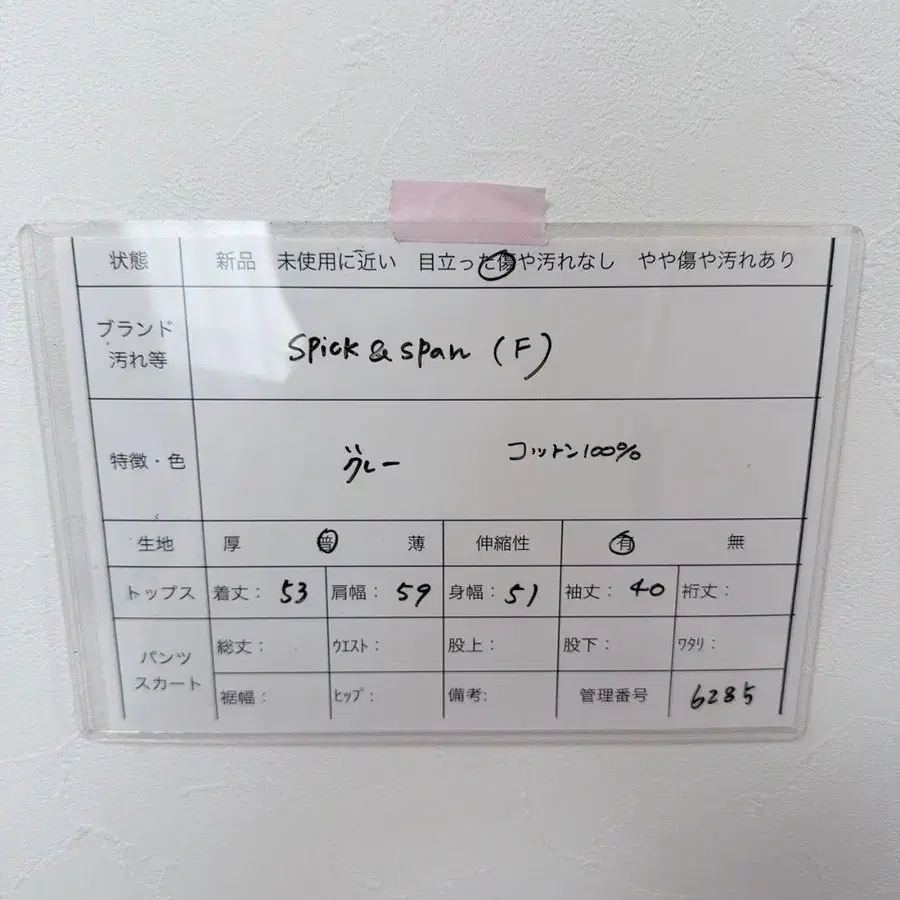 状態 新品 未使用に近い 目立った傷や汚れなし やや傷や汚れあり
ブランド
汚れ等
Spick & Span (F)
特徴・色 グレー コットン100%
生地 厚 普 薄 伸縮性 有 無
トップス 着丈: 53 肩幅: 59 身幅: 51 袖丈: 40 裄丈:
パンツ
スカート
総丈: ウエスト: 股上: 股下: ワタリ:
裾幅: ヒップ: 備考: 管理番号 6285